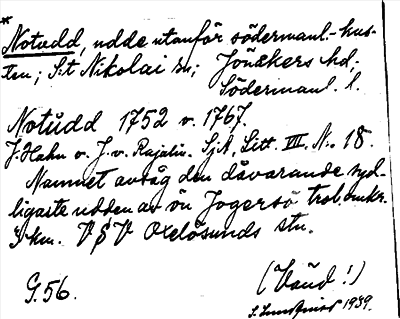 *
Notudd, udde utanför södermanl.-kus-
ten; S:t Nikolai sn; Jönåkers hd;
Södermanl. l.
Notudd 1752 v. 1767.
J. Hahn v. J. v. Rajalin. SjA, Litt. III. No 18.
Namnet avsåg den dåvarande syd-
ligaste udden av ön Jogersö trol. omkr.
km. VSV Oxelösunds stn.
G.56. (Vaud!)
S. Lundqvist 1939.